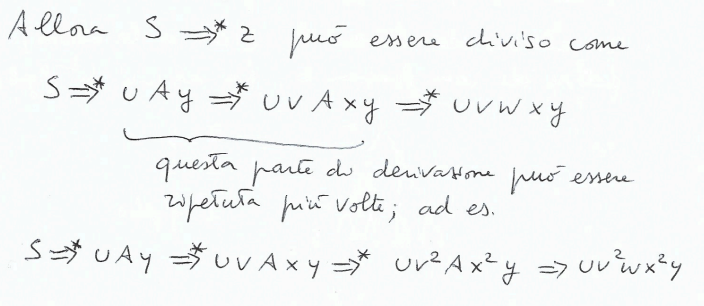 Allora S ⇒* z può essere diviso come
S ⇒* u A y ⇒* u v A x y ⇒* u v w x y
questa parte di derivazione può essere
ripetuta più volte; ad es.
S ⇒* u A y ⇒* u v A x y ⇒* u v² A x² y ⇒ u v² w x² y